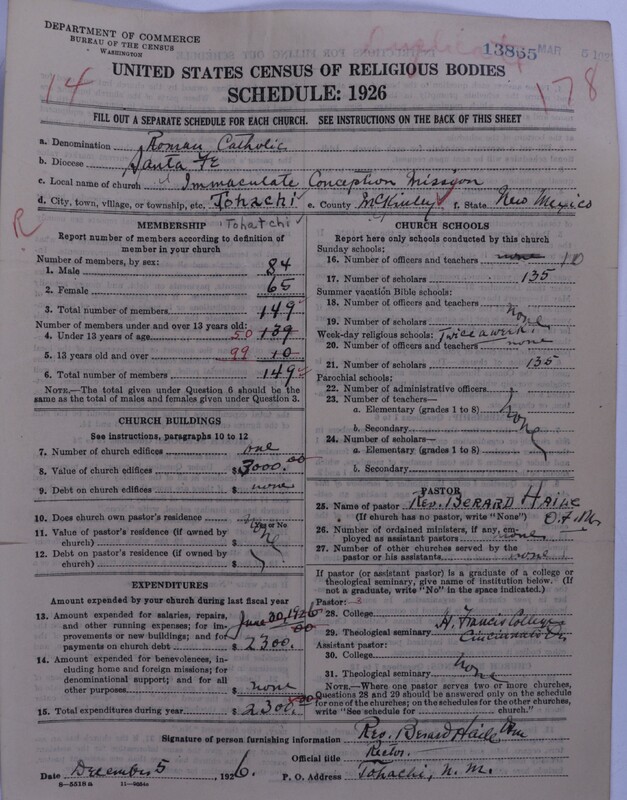 DEPARTMENT OF COMMERCE
BUREAU OF THE CENSUS
WASHINGTON
Duplicate
13865 MAR
14
UNITED STATES CENSUS OF RELIGIOUS BODIES
SCHEDULE: 1926
178
FILL OUT A SEPARATE SCHEDULE FOR EACH CHURCH. SEE INSTRUCTIONS ON THE BACK OF THIS SHEET
a. Denomination Roman Catholic
b. Diocese Santa Fe
c. Local name of church Immaculate Conception Mission
d. City, town, village, or township, etc. Tohachi e. County McKinley f. State New Mexico
R
Tohatchi
MEMBERSHIP
Report number of members according to definition of
member in your church
Number of members, by sex:
1. Male 84
2. Female 65
3. Total number of members 149
Number of members under and over 13 years old:
4. Under 13 years of age 50 139
5. 13 years old and over 99 10
6. Total number of members 149
NOTE.—The total given under Question 6 should be
same as the total of males and females given under Question 3.
CHURCH BUILDINGS
See instructions, paragraphs 10 to 12
7. Number of church edifices one
8. Value of church edifices $3000.00
9. Debt on church edifices $ none
10. Does church own pastor's residence
(Yes or No
11. Value of pastor's residence (if owned by
church) $
12. Debt on pastor's residence (if owned by
church) $
EXPENDITURES
Amount expended by your church during last fiscal year
June 30, 1926
13. Amount expended for salaries, repairs,
and other running expenses; for im-
provements or new buildings; and for
payments on church debt $ 2300.00
14. Amount expended for benevolences, in-
cluding home and foreign missions; for
denominational support; and for all
other purposes $ none
15. Total expenditures during year $ 2300.00
CHURCH SCHOOLS
Report here only schools conducted by this church
Sunday schools:
16. Number of officers and teachers none 10
17. Number of scholars 135
Summer vacation Bible schools:
18. Number of officers and teachers
19. Number of scholars none
Week-day religious schools: Twice a week
20. Number of officers and teachers none
21. Number of scholars 135
Parochial schools:
22. Number of administrative officers
23. Number of teachers—
a. Elementary (grades 1 to 8) none
b. Secondary
24. Number of scholars—
a. Elementary (grades 1 to 8)
b. Secondary
PASTOR
25. Name of pastor Rev. BERARD HAILE
(If church has no pastor, write "None") O.F.M.
26. Number of ordained ministers, if any, em-
ployed as assistant pastors none
27. Number of other churches served by the
pastor or his assistants none
If pastor (or assistant pastor) is a graduate of a college or
theological seminary, give name of institution below. (If
not a graduate, write "No" in the space indicated.)
Pastor: 3
28. College
29. Theological seminary St. Francis College
Cincinnati O.
Assistant pastor:
30. College
31. Theological seminary none
NOTE.—Where one pastor serves two or more churches,
Questions 28 and 29 should be answered only on the schedule
for one of the churches; on the schedules for the other churches,
write "See schedule for church."
Signature of person furnishing information Rev. Berard Haile Ofm
Official title Rector.
Date December 5, 1926. P. O. Address Tohachi, N. M.
8—5518a